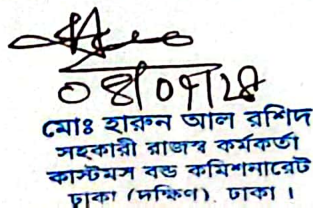 ০৪/০৭/২৪
মোঃ হারুন আল রশিদ
সহকারী রাজস্ব কর্মকর্তা
কাস্টমস বন্ড কমিশনারেট
ঢাকা (দক্ষিণ), ঢাকা ।